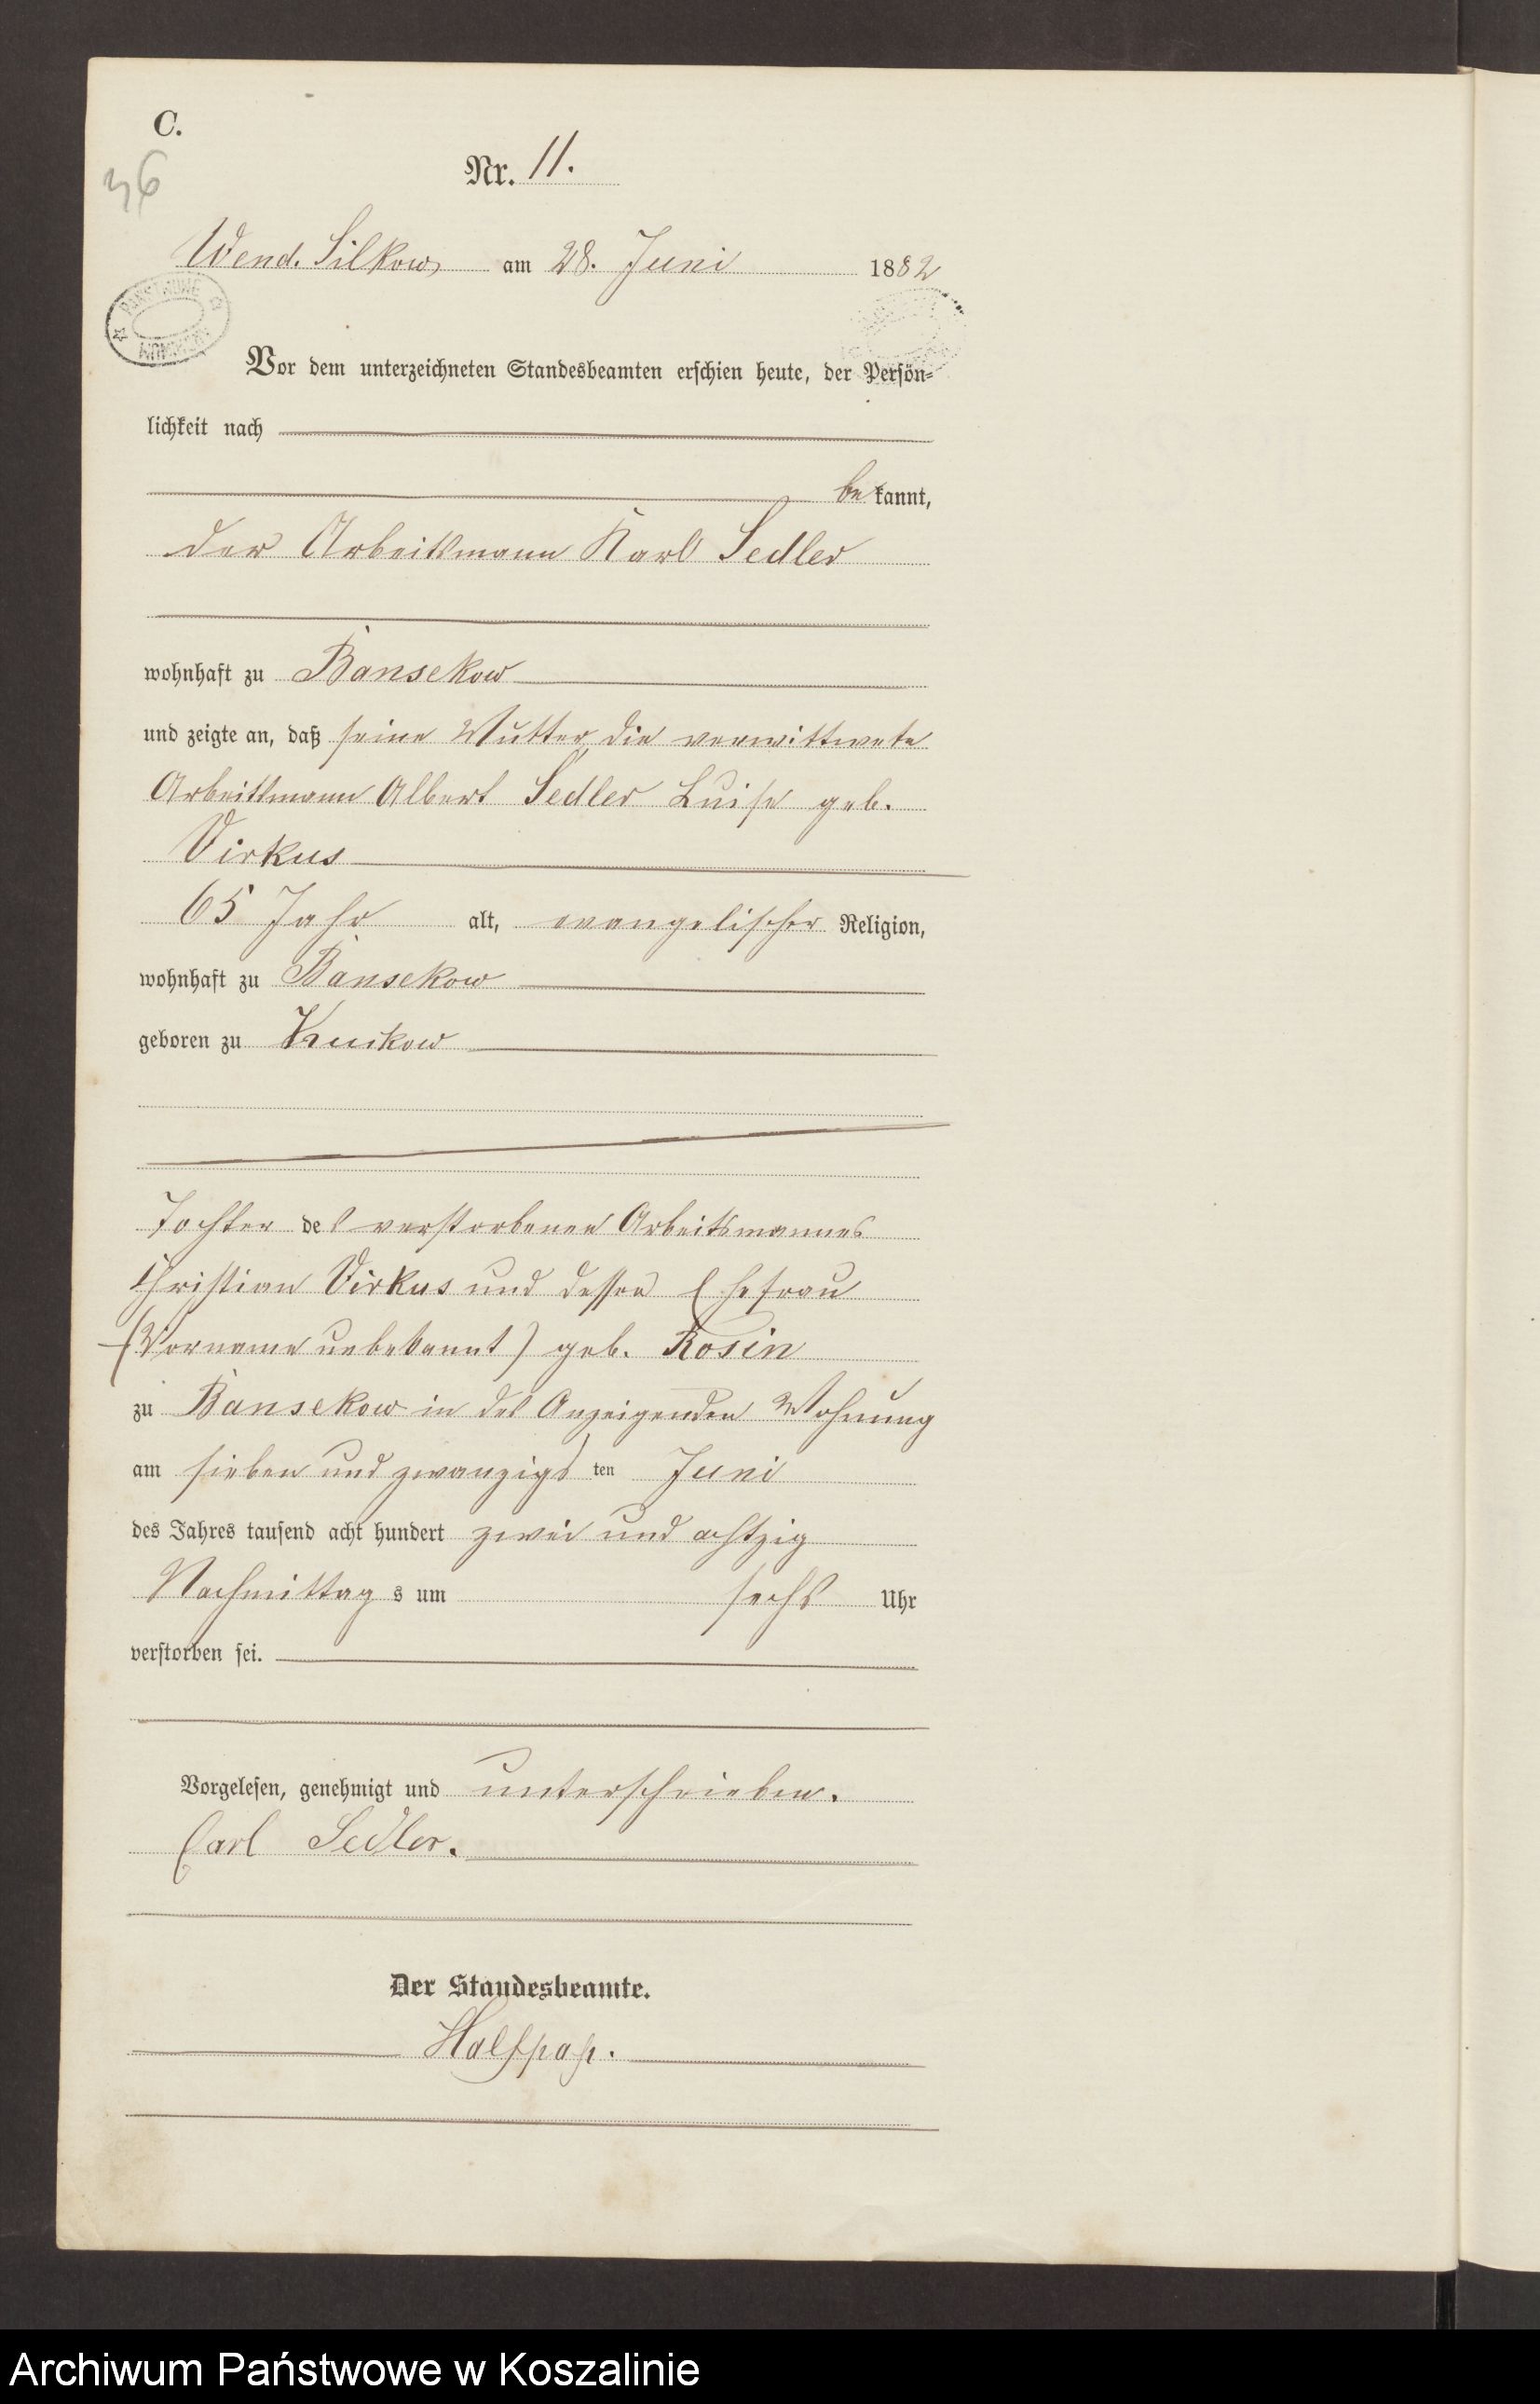 C.
36
Nr. 11.
Wend. Silkow, am 28. Juni 1882
Vor dem unterzeichneten Standesbeamten erschien heute, der Persön-
lichkeit nach
bekannt,
der Arbeitsmann Karl Sedler
wohnhaft zu Bansekow
und zeigte an, daß seine Mutter, die verwittwete
Arbeitsmann Albert Sedler Luise geb.
Virkus
65 Jahr alt, evangelischer Religion,
wohnhaft zu Bansekow
geboren zu
Tochter des verstorbenen Arbeitsmannes
Christian Virkus und dessen Ehefrau
(Vorname unbekannt) geb. Rosin
zu Bansekow in des Anzeigenden Wohnung
am sieben und zwanzigsten Juni
des Jahres tausend acht hundert zwei und achtzig
Nachmittags um sechs Uhr
verstorben sei.
Vorgelesen, genehmigt und unterschrieben.
Carl Sedler.
Der Standesbeamte.
Halfpap.
Archiwum Państwowe w Koszalinie